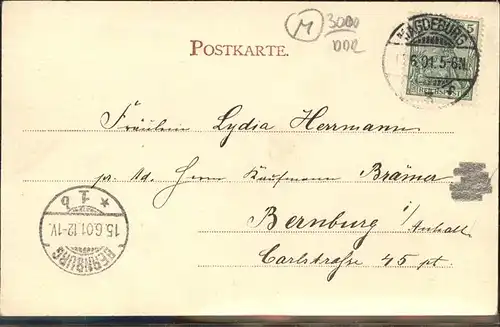 M 3000
DDR
POSTKARTE.
MAGDEBURG
6.01.5-6N.
Fräulein Lydia Herrmann
pr. Ad. Herrn Kaufmann Brämer
Bernburg i/Anhalt
Carlstrasse 45 pt.
* 1b
15.6.01.12-1V.
BERNBURG